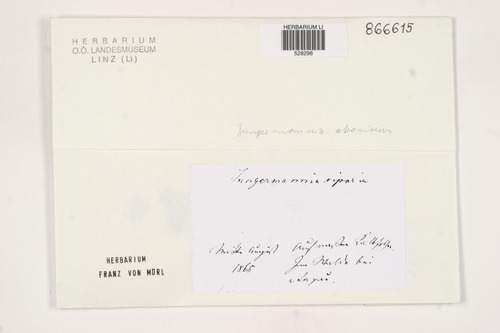 HERBARIUM
O.Ö. LANDESMUSEUM
LINZ (LI)
HERBARIUM LI
528298
866615
Jungermannia
Jungermannia riparia
Mitte August Auf nassen
1865 Im Walde bei
HERBARIUM
FRANZ VON MÖRL